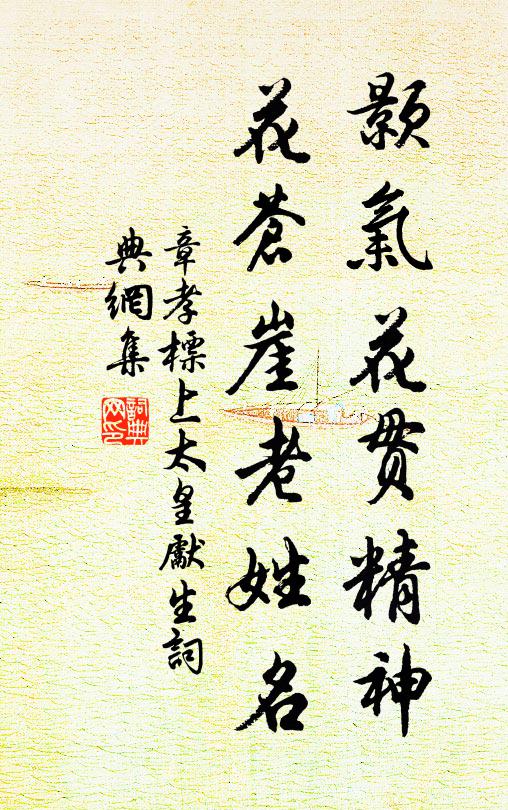 顥氣花貫精神
花蒼崖老姓名
章孝標上太皇獻生詞
典網集
詞典網印